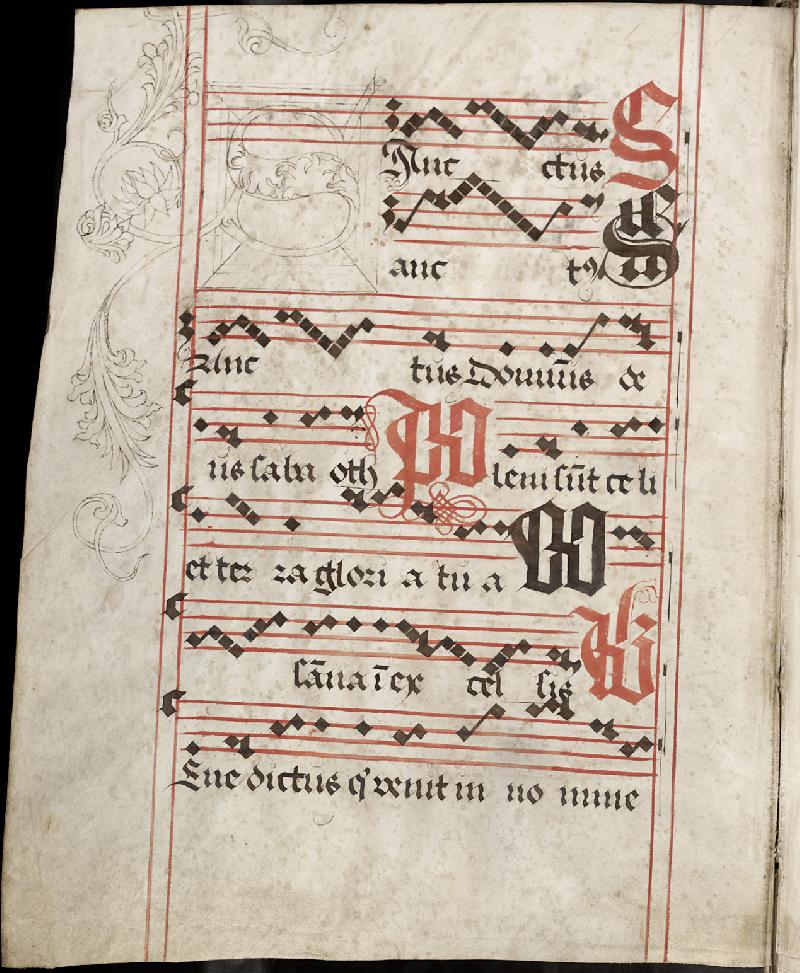 S Anc ctus S
anc tꝰ S
Anc tus Domin̄s de
us saba oth P leni sūt ce li
et ter ra glori a tu a O
sāna ī ex cel sis B
Ene dictus q̓ venit in no mine